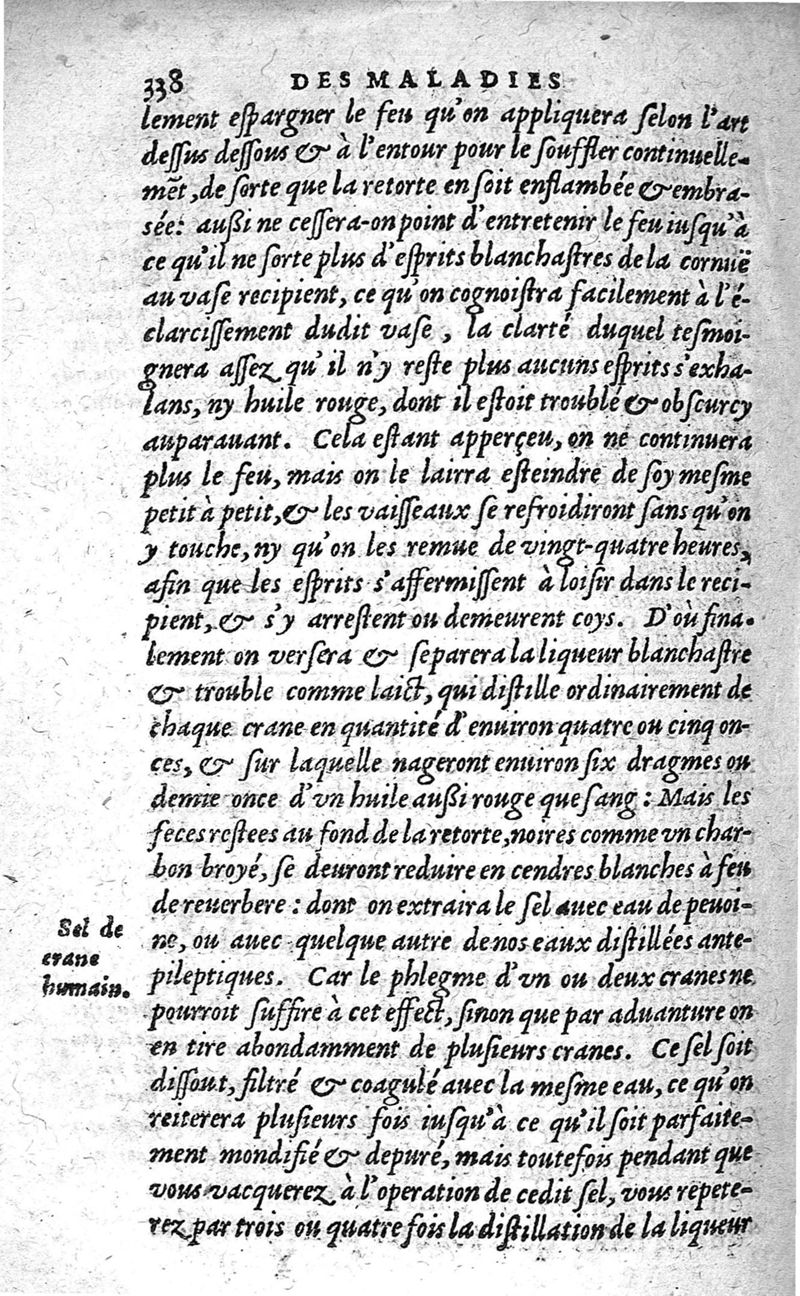 338 DES MALADIES
lement eſpargner le feu qu'on appliquera ſelon l'art
deſſus deſſous & à l'entour pour le ſouffler continuelle-
mẽt, de ſorte que la retorte en ſoit enflambée & embra-
sée: außi ne ceſſera-on point d'entretenir le feu iuſqu'à
ce qu'il ne ſorte plus d'eſprits blanchaſtres de la cornuë
au vaſe recipient, ce qu'on cognoiſtra facilement à l'é-
clarciſſement dudit vaſe, la clarté duquel teſmoi-
gnera aſſez qu'il n'y reſte plus aucuns eſprits s'exha-
lans, ny huile rouge, dont il eſtoit troublé & obſcurcy
auparauant. Cela eſtant apperçeu, on ne continuera
plus le feu, mais on le lairra eſteindre de ſoy meſme
petit à petit, & les vaiſſeaux ſe refroidiront ſans qu'on
y touche, ny qu'on les remue de vingt-quatre heures,
afin que les eſprits s'affermiſſent à loiſir dans le reci-
pient, & s'y arreſtent ou demeurent coys. D'où fina-
lement on verſera & ſeparera la liqueur blanchaſtre
& trouble comme laict, qui diſtille ordinairement de
chaque crane en quantité d'enuiron quatre ou cinq on-
ces, & ſur laquelle nageront enuiron ſix dragmes ou
demie once d'vn huile außi rouge que ſang: Mais les
feces reſtees au fond de la retorte, noires comme vn char-
bon broyé, ſe deuront reduire en cendres blanches à feu
de reuerbere: dont on extraira le ſel auec eau de peuoi-
Sel de
crane
humain.
ne, ou auec quelque autre de nos eaux diſtillées ante-
pileptiques. Car le phlegme d'vn ou deux cranes ne
pourroit ſuffire à cet effect, ſinon que par aduanture on
en tire abondamment de pluſieurs cranes. Ce ſel ſoit
diſſout, filtré & coagulé auec la meſme eau, ce qu'on
reiterera pluſieurs fois iuſqu'à ce qu'il ſoit parfaite-
ment mondifié & depuré, mais toutefois pendant que
vous vacquerez à l'operation de cedit ſel, vous repete-
rez par trois ou quatre fois la diſtillation de la liqueur